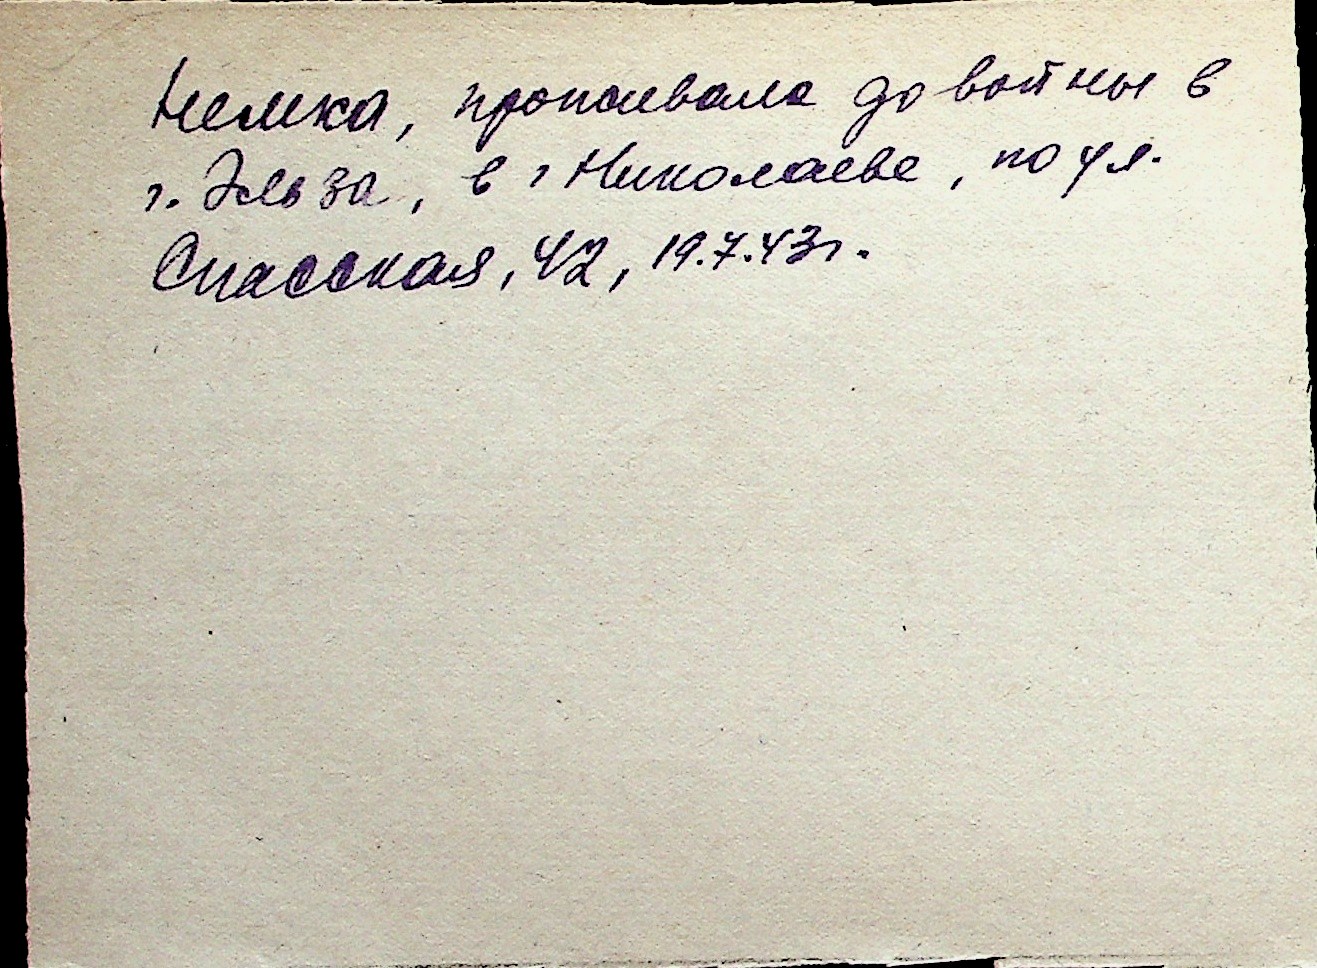 Немка, проживала до войны в
г. Эльза, в г Николаеве, по ул.
Спасская, 42, 19.7.43г.